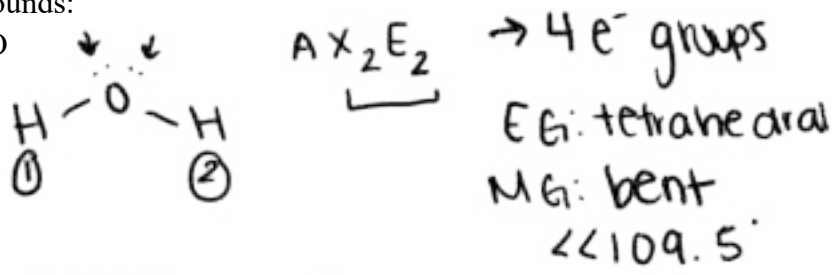 ounds:
H - O - H
① ②
AX₂E₂ → 4 e⁻ groups
EG: tetrahedral
MG: bent
<<109.5°